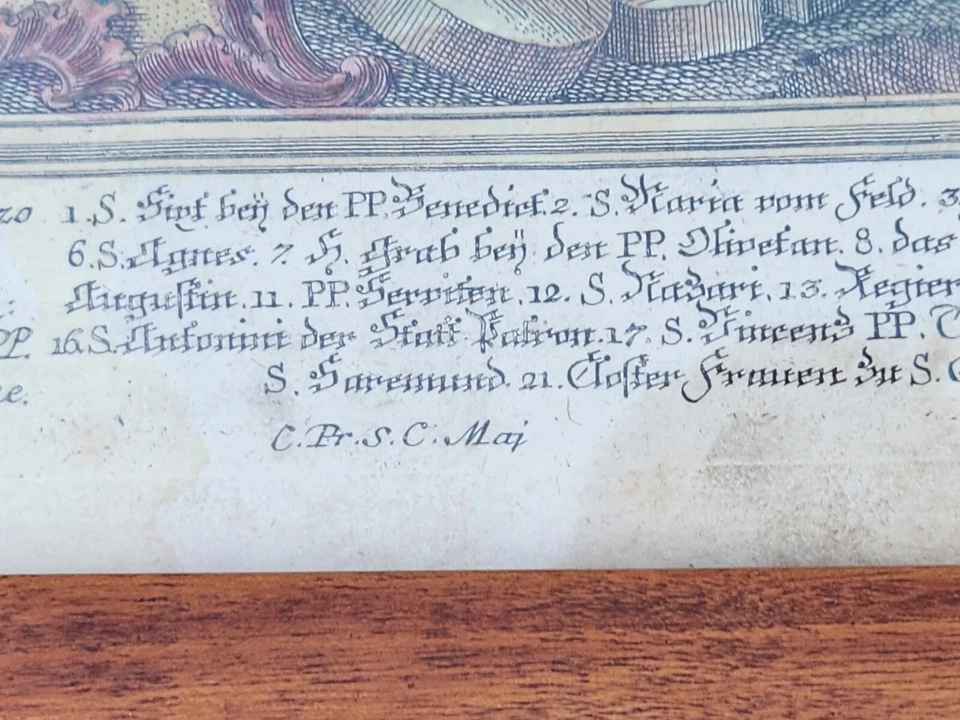 zo 1. S. Sixt beÿ den PP. Benedict. 2. S. Maria vom Feld. 3
6. S. Agnes. 7. H. Grab beÿ den PP. Olivetan. 8. das
: Augustin. 11. PP. Serviten. 12. S. Nazari. 13. Regier
PP. 16. S. Antonini der Statt Patron. 17. S. Vincenz PP.
e. S. Saremund. 21. Closter Frauen zu S.
C. Pr. S. C. Maj